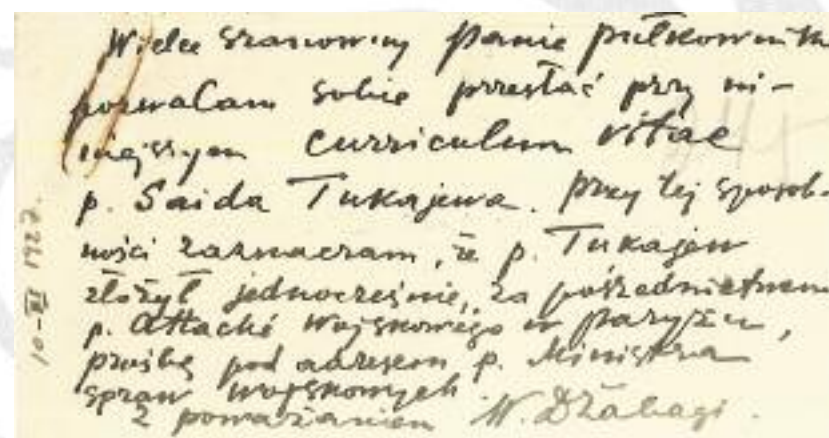 Wielce Szanowny Panie pułkowniku
pozwalam sobie przesłać przy ni-
niejszym curriculum vitae
p. Saida Tukajewa. Przy tej sposob-
ności zaznaczam, że p. Tukajew
złożył jednocześnie, za pośrednictwem
p. Attaché Wojskowego w Paryżu,
prośbę pod adresem p. Ministra
spraw wojskowych.
Z poważaniem W. Dżabagi.